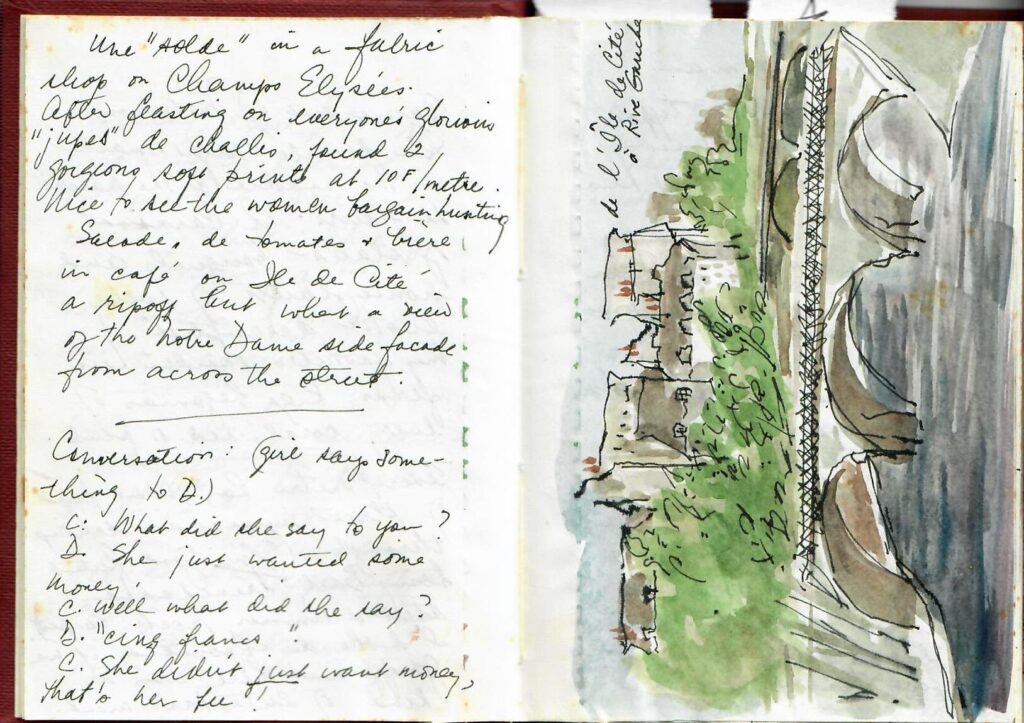 Une "solde" in a fabric
shop on Champs Elysées.
After feasting on everyone's glorious
"jupes" de challis, found 2
gorgeous soft prints at 10F/metre.
Nice to see the women bargain hunting
Salade de tomates + bière
in café on Ile de Cité
a ripoff but what a view
of the Notre Dame side facade
from across the street.
Conversation: (girl says some-
thing to D.)
C. What did she say to you?
D. She just wanted some
money.
C. Well what did she say?
D. "cinq francs".
C. She didn't just want money,
that's her fee!
de l'Île de Cité
à Rive Gauche